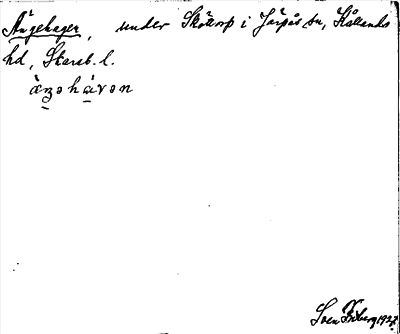 Ängehagen, under Skölorp i Järpås sn, Kållands
hd, Skarab. l.
äŋəhàvən
Sven Ekberg 1927.